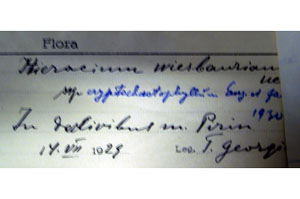 Flora
Hieracium wiesbaurian
ssp. cryptochaetophyllum
1930
In declivibus m. Pirin
14. VII 1929 Leg. T. Georgi